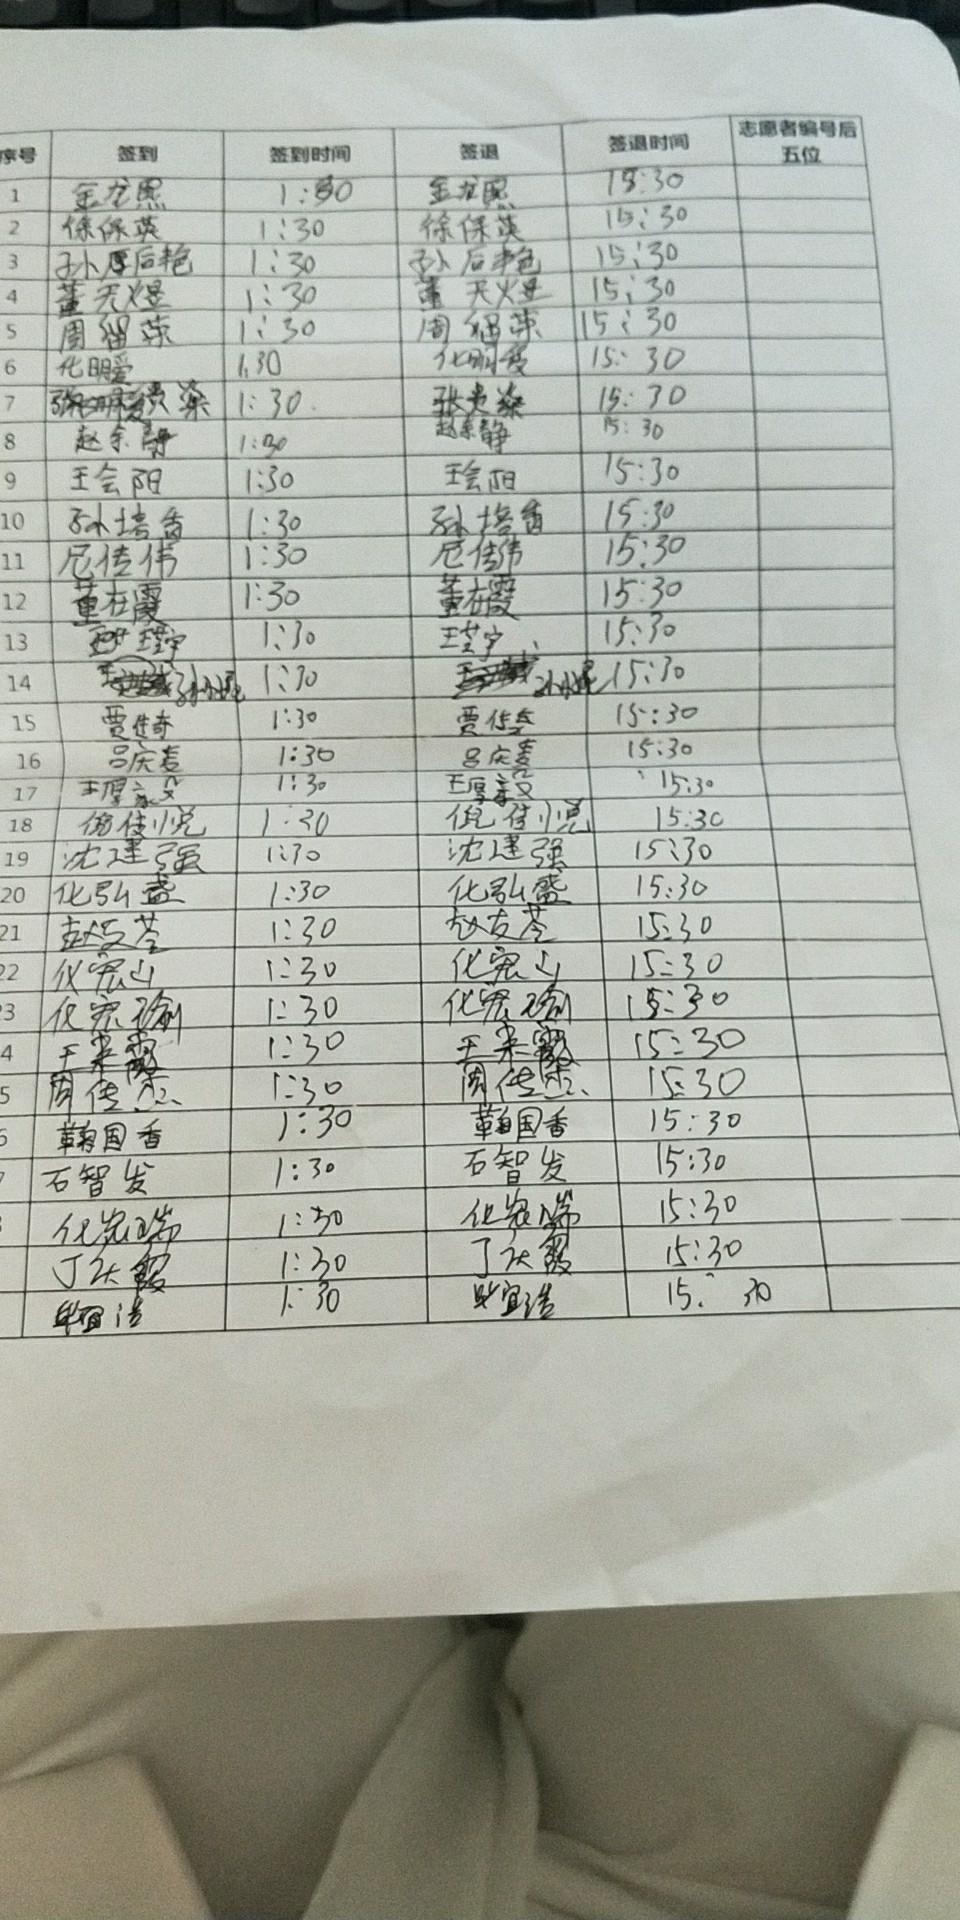 序号 签到 签到时间 签退 签退时间 志愿者编号后五位
1 金龙熙 1:30 金龙熙 15:30
2 徐保英 1:30 徐保英 15:30
3 孙后艳 1:30 孙后艳 15:30
4 董天煜 1:30 董天煜 15:30
5 周福荣 1:30 周福荣 15:30
6 化明爱 1:30 化明爱 15:30
7 1:30 张贵荣 15:30
8 赵余静 1:30 赵余静 15:30
9 王会阳 1:30 王会阳 15:30
10 孙培香 1:30 孙培香 15:30
11 尼传伟 1:30 尼传伟 15:30
12 董在霞 1:30 董在霞 15:30
13 1:30 15:30
14 1:30 15:30
15 1:30 15:30
16 1:30 15:30
17 1:30 15:30
18 倪佳悦 1:30 倪佳悦 15:30
19 沈建强 1:30 沈建强 15:30
20 化弘盛 1:30 化弘盛 15:30
21 1:30 15:30
22 化宏山 1:30 化宏山 15:30
3 1:30 15:30
4 王米霞 1:30 王米霞 15:30
5 周传杰 1:30 周传杰 15:30
6 韩国香 1:30 韩国香 15:30
石智发 1:30 石智发 15:30
1:30 15:30
丁庆霞 1:30 丁庆霞 15:30
1:30 15:30